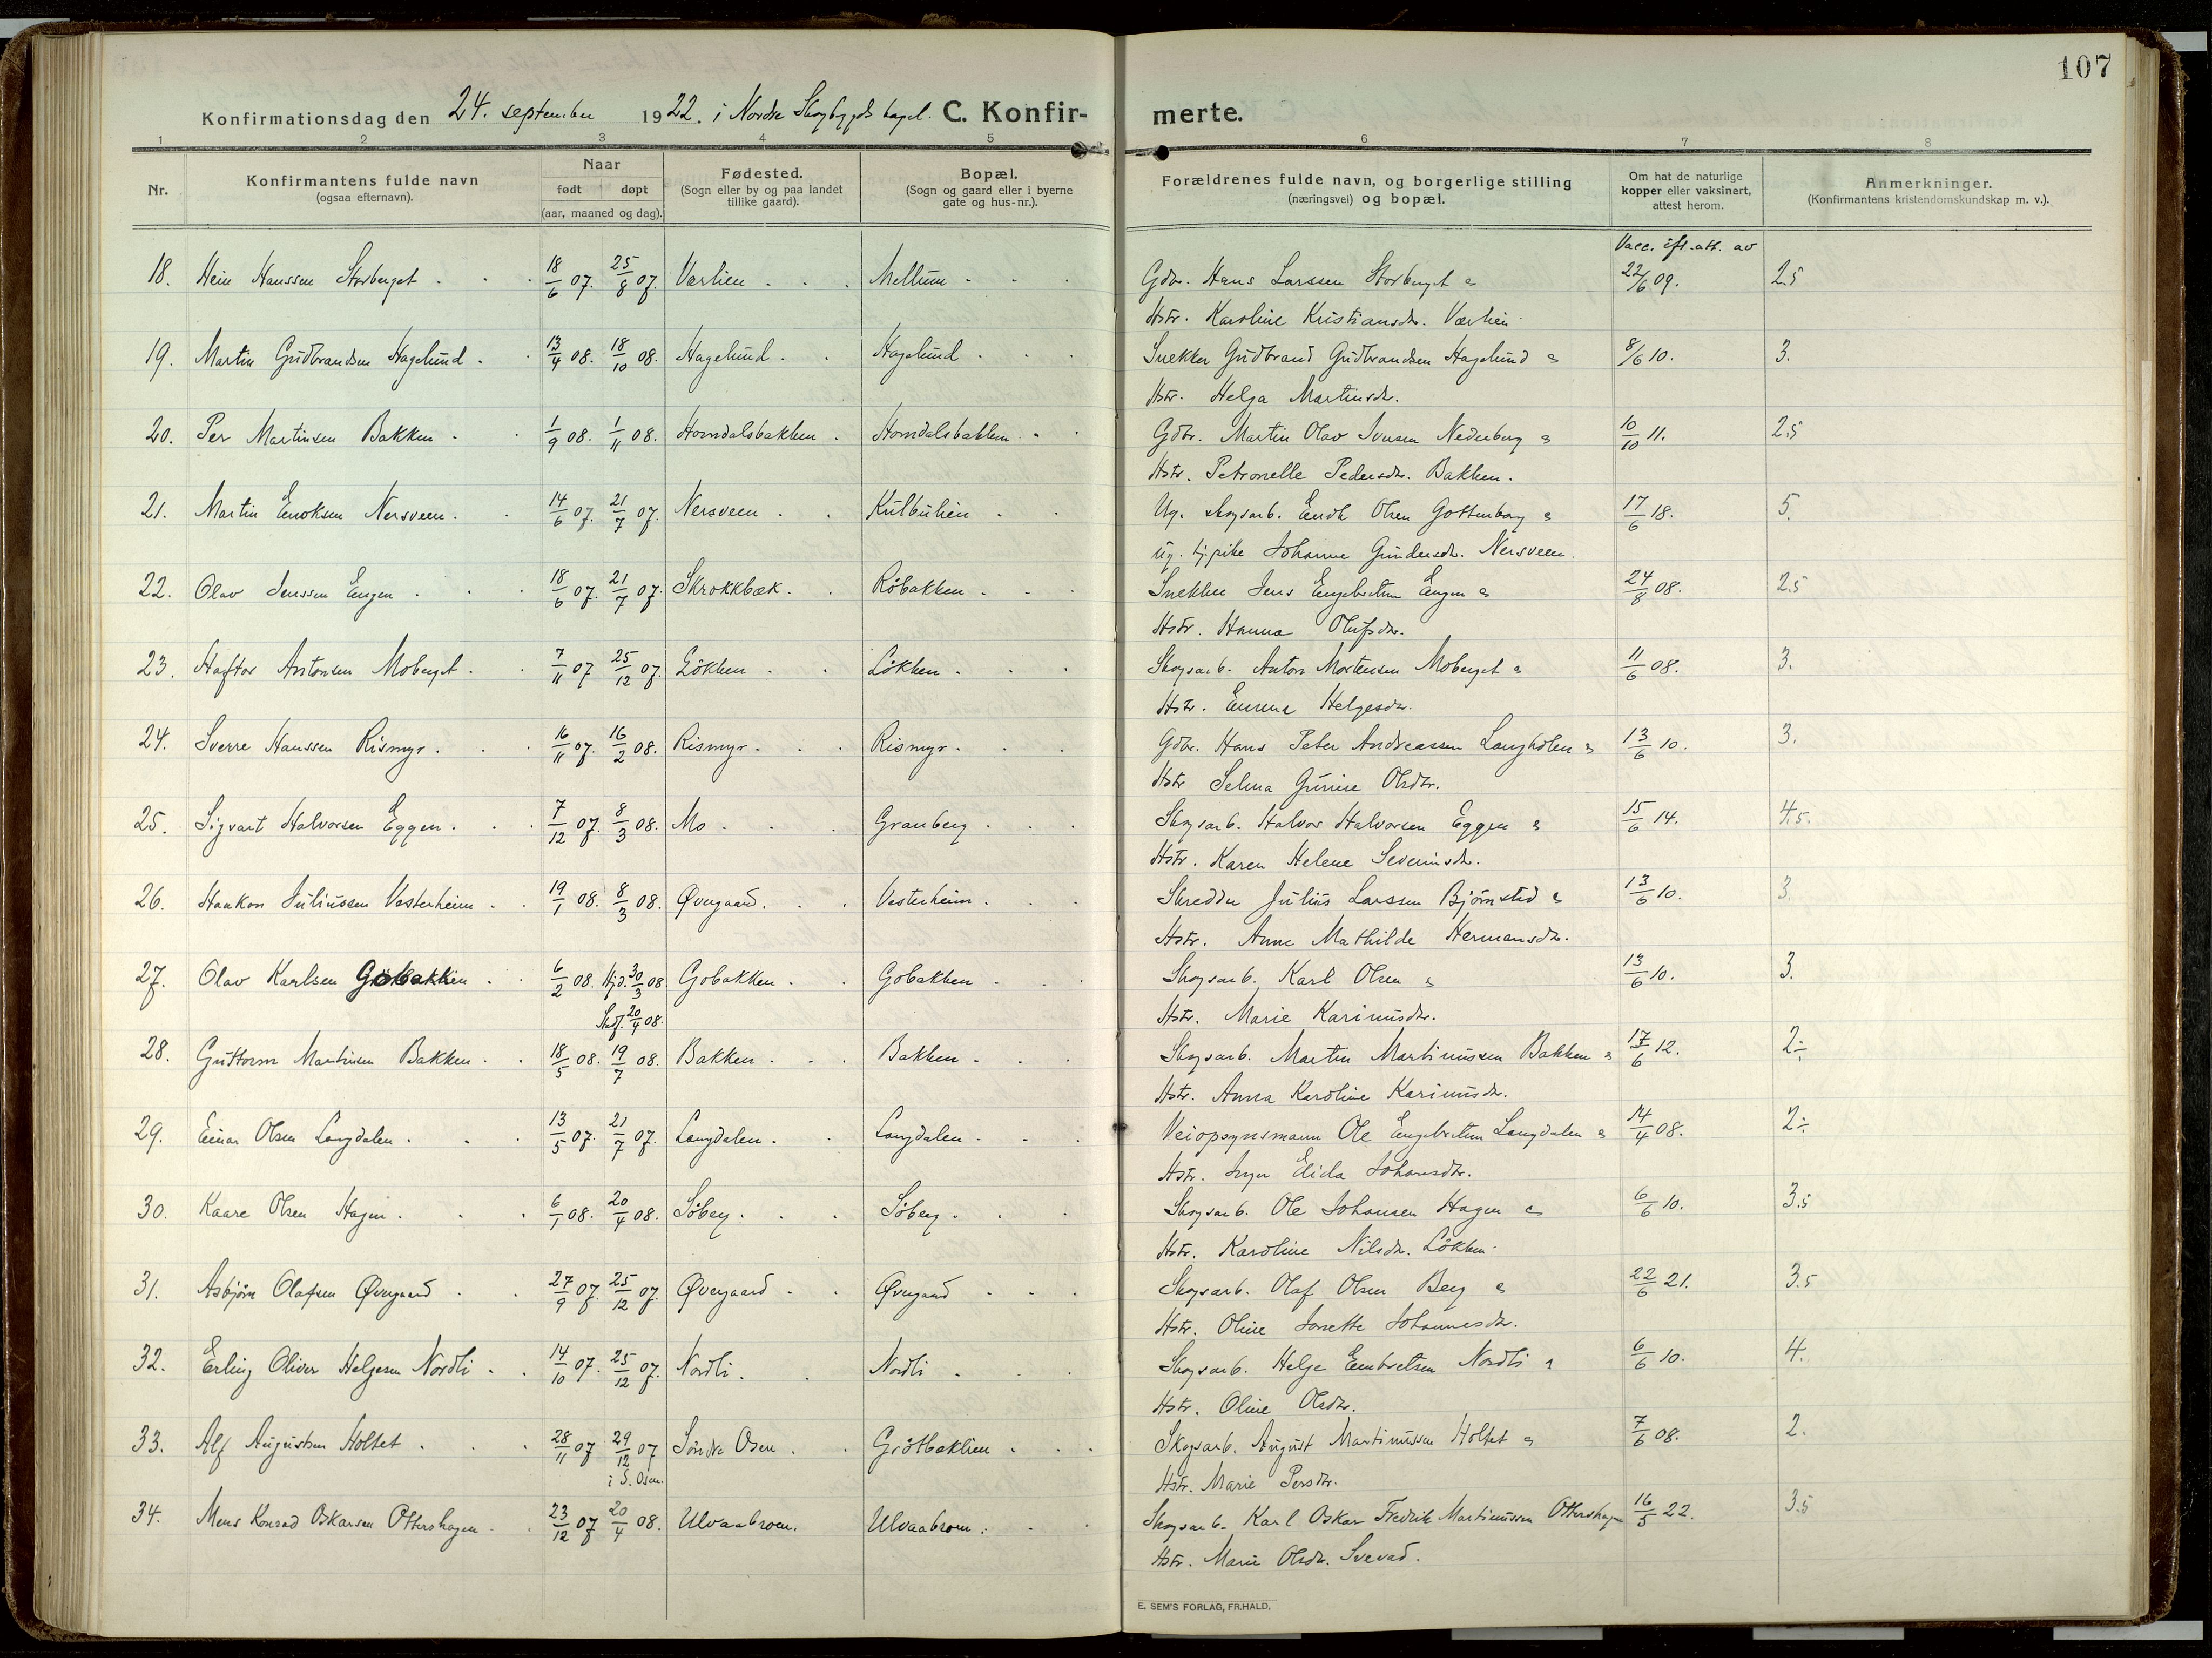 107
Konfirmationsdag den 24. september 1922. i Nordre Skogbygds kapel. C. Konfir- merte.
1 2 3 4 5 6 7 8
Nr.
Konfirmantens fulde navn
(ogsaa efternavn).
Naar
født døpt
(aar, maaned og dag).
Fødested.
(Sogn eller by og paa landet
tillike gaard).
Bopæl.
(Sogn og gaard eller i byerne
gate og hus-nr.).
Forældrenes fulde navn, og borgerlige stilling
(næringsvei) og bopæl.
Om hat de naturlige
kopper eller vaksinert,
attest herom.
Anmerkninger.
(Konfirmantens kristendomskundskap m. v.).
Vacc. ifl. att. av
18. Hein Hanssen Storberget. 18/6 07. 25/8 07. Værlien. Mellum. Gdbr. Hans Larssen Storberget & 22/6 09. 2.5
Hstr. Karoline Kristiansdr. Værlien.
19. Martin Gudbrandsen Hagelund. 13/4 08. 18/10 08. Hagelund. Hagelund. Snekker Gudbrand Gudbrandsen Hagelund & 8/6 10. 3.
Hstr. Helga Martinsdr.
20. Per Martinsen Bakken. 1/9 08. 1/11 08. Horndalsbakken. Horndalsbakken. Gdbr. Martin Olav Iversen Nederberg & 10/10 11. 2.5
Hstr. Petronelle Pedersdr. Bakken.
21. Martin Enoksen Nersveen. 14/6 07. 21/7 07. Nersveen. Kulbulien. Ug. skogsarb. Enok Olsen Gottenborg & 17/6 18. 5.
ug. tj.pike Johanne Gundersdr. Nersveen.
22. Olav Jenssen Engen. 18/6 07. 21/7 07. Skrokkbæk. Röbakken. Snekker Jens Engebretsen Engen & 24/8 08. 2.5
Hstr. Hanna Olufsdr.
23. Haftor Antonsen Moberget. 7/11 07 25/12 07. Lökken. Lökken. Skogsarb. Anton Mortensen Moberget & 11/6 08. 3.
Hstr. Emma Helgesdr.
24. Sverre Hanssen Rismyr. 16/11 07. 16/2 08. Rismyr. Rismyr. Gdbr. Hans Peter Andreassen Langholen & 13/6 10. 3.
Hstr Selma Gunine Olsdtr.
25. Sigvart Halvorsen Eggen. 7/12 07. 8/3 08. Mo. Granberg. Skogsarb. Halvor Halvorsen Eggen & 15/6 14. 4.5.
Hstr. Karen Helene Severinsdr.
26. Haakon Juliussen Vesterheim. 19/1 08. 8/3 08. Øvergaard. Vesterheim. Skredder Julius Larssen Bjørnsted & 13/6 10. 3
Hstr. Anne Mathilde Hermansdr.
27. Olav Karlsen Gobakken. 6/2 08. Hjd. 30/3 08 Gobakken. Gobakken. Skogsarb. Karl Olsen & 13/6 10. 3.
Stadf. 20/4 08. Hstr. Marie Karinusdr.
28. Guttorm Martinsen Bakken. 18/5 08. 19/7 08. Bakken. Bakken. Skogsarb. Martin Martinussen Bakken & 17/6 12. 2÷
Hstr. Anna Karoline Karinusdr.
29. Einar Olsen Langdalen. 13/5 07. 21/7 07. Langdalen. Langdalen. Veiopsynsmann Ole Engebretsen Langdalen & 14/4 08. 2÷
Hstr. Inga Elida Johansdtr.
30. Kaare Olsen Hagen. 6/1 08. 20/4 08. Söberg. Söberg. Skogsarb. Ole Johansen Hagen & 6/6 10. 3.5
Hstr. Karoline Nilsdr. Lökken.
31. Asbjörn Olafsen Øvergaard. 27/9 07. 25/12 07. Øvergaard. Øvergaard. Skogsarb. Olaf Olsen Berg & 22/6 21. 3.5
Hstr. Oline Josette Johannesdr.
32. Erling Oliver Helgesen Nordli. 14/10 07. 25/12 07. Nordli. Nordli. Skogsarb. Helge Embretsen Nordli & 6/6 10. 4.
Hstr. Oline Olsdtr.
33. Alf Augustsen Holtet. 28/11 07 29/12 07 Söndre Osen. Gråtbakken. Skogsarb. August Martinussen Holtet & 7/6 08. 2.
i S. Osen. Hstr. Marie Persdtr.
34. Mens Konrad Oskarsen Ottershagen. 23/12 07 20/4 08. Ulvaabroen. Ulvaabroen. Skogsarb. Karl Oskar Fredrik Martinussen Ottershagen 16/5 22. 3.5
Hstr. Marie Olsdr. Svevad.
E. SEM'S FORLAG, FR.HALD.